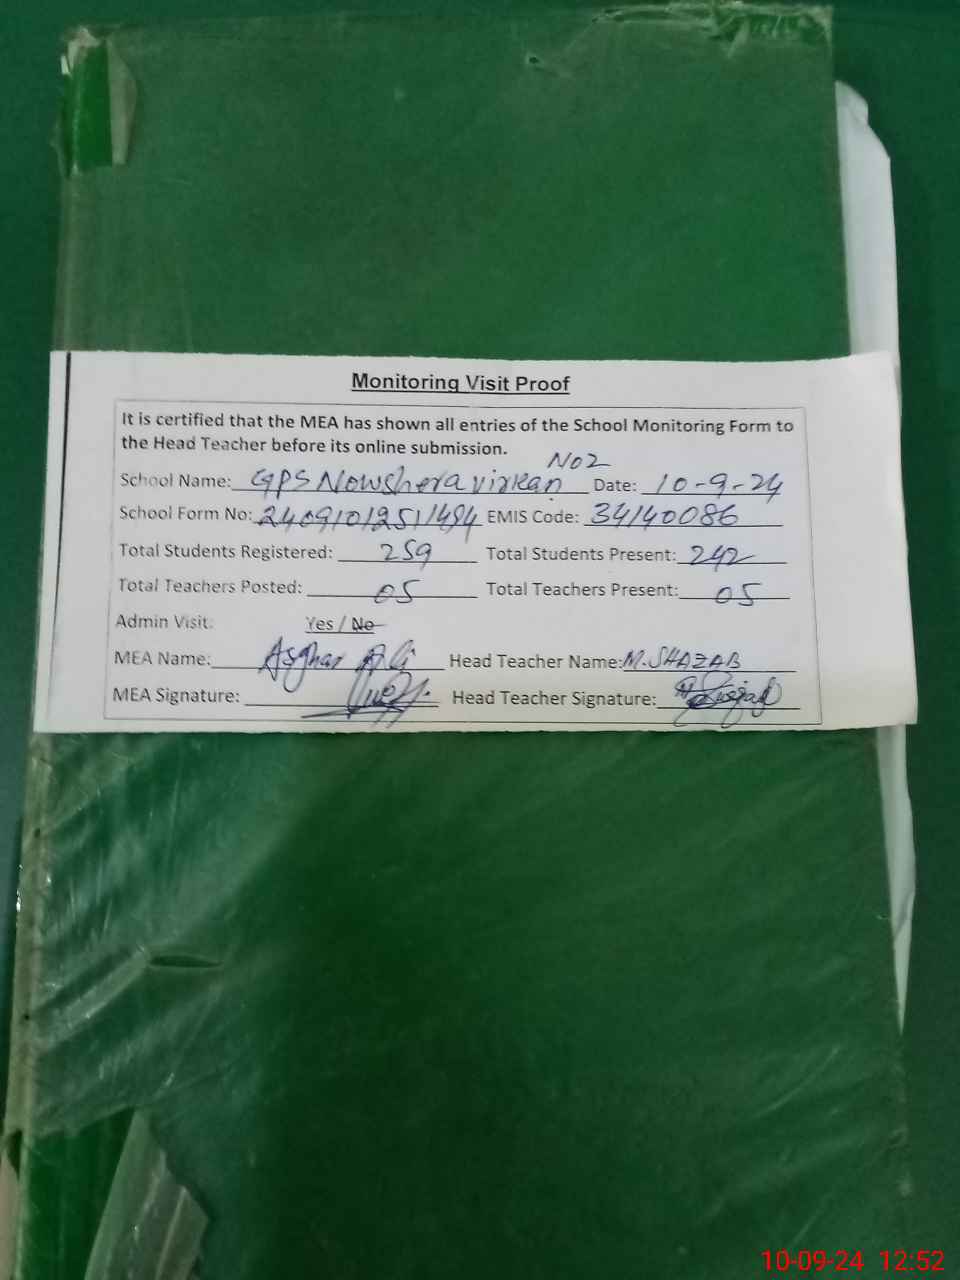 Monitoring Visit Proof
It is certified that the MEA has shown all entries of the School Monitoring Form to
the Head Teacher before its online submission.
No2
School Name: GPS Nowshera virkan Date: 10-9-24
School Form No: 24091012511494 EMIS Code: 34140086
Total Students Registered: 259 Total Students Present: 242
Total Teachers Posted: 05 Total Teachers Present: 05
Admin Visit: Yes / No
MEA Name: Asghar Ali Head Teacher Name: M. SHAZAB
MEA Signature: Head Teacher Signature:
10-09-24 12:52